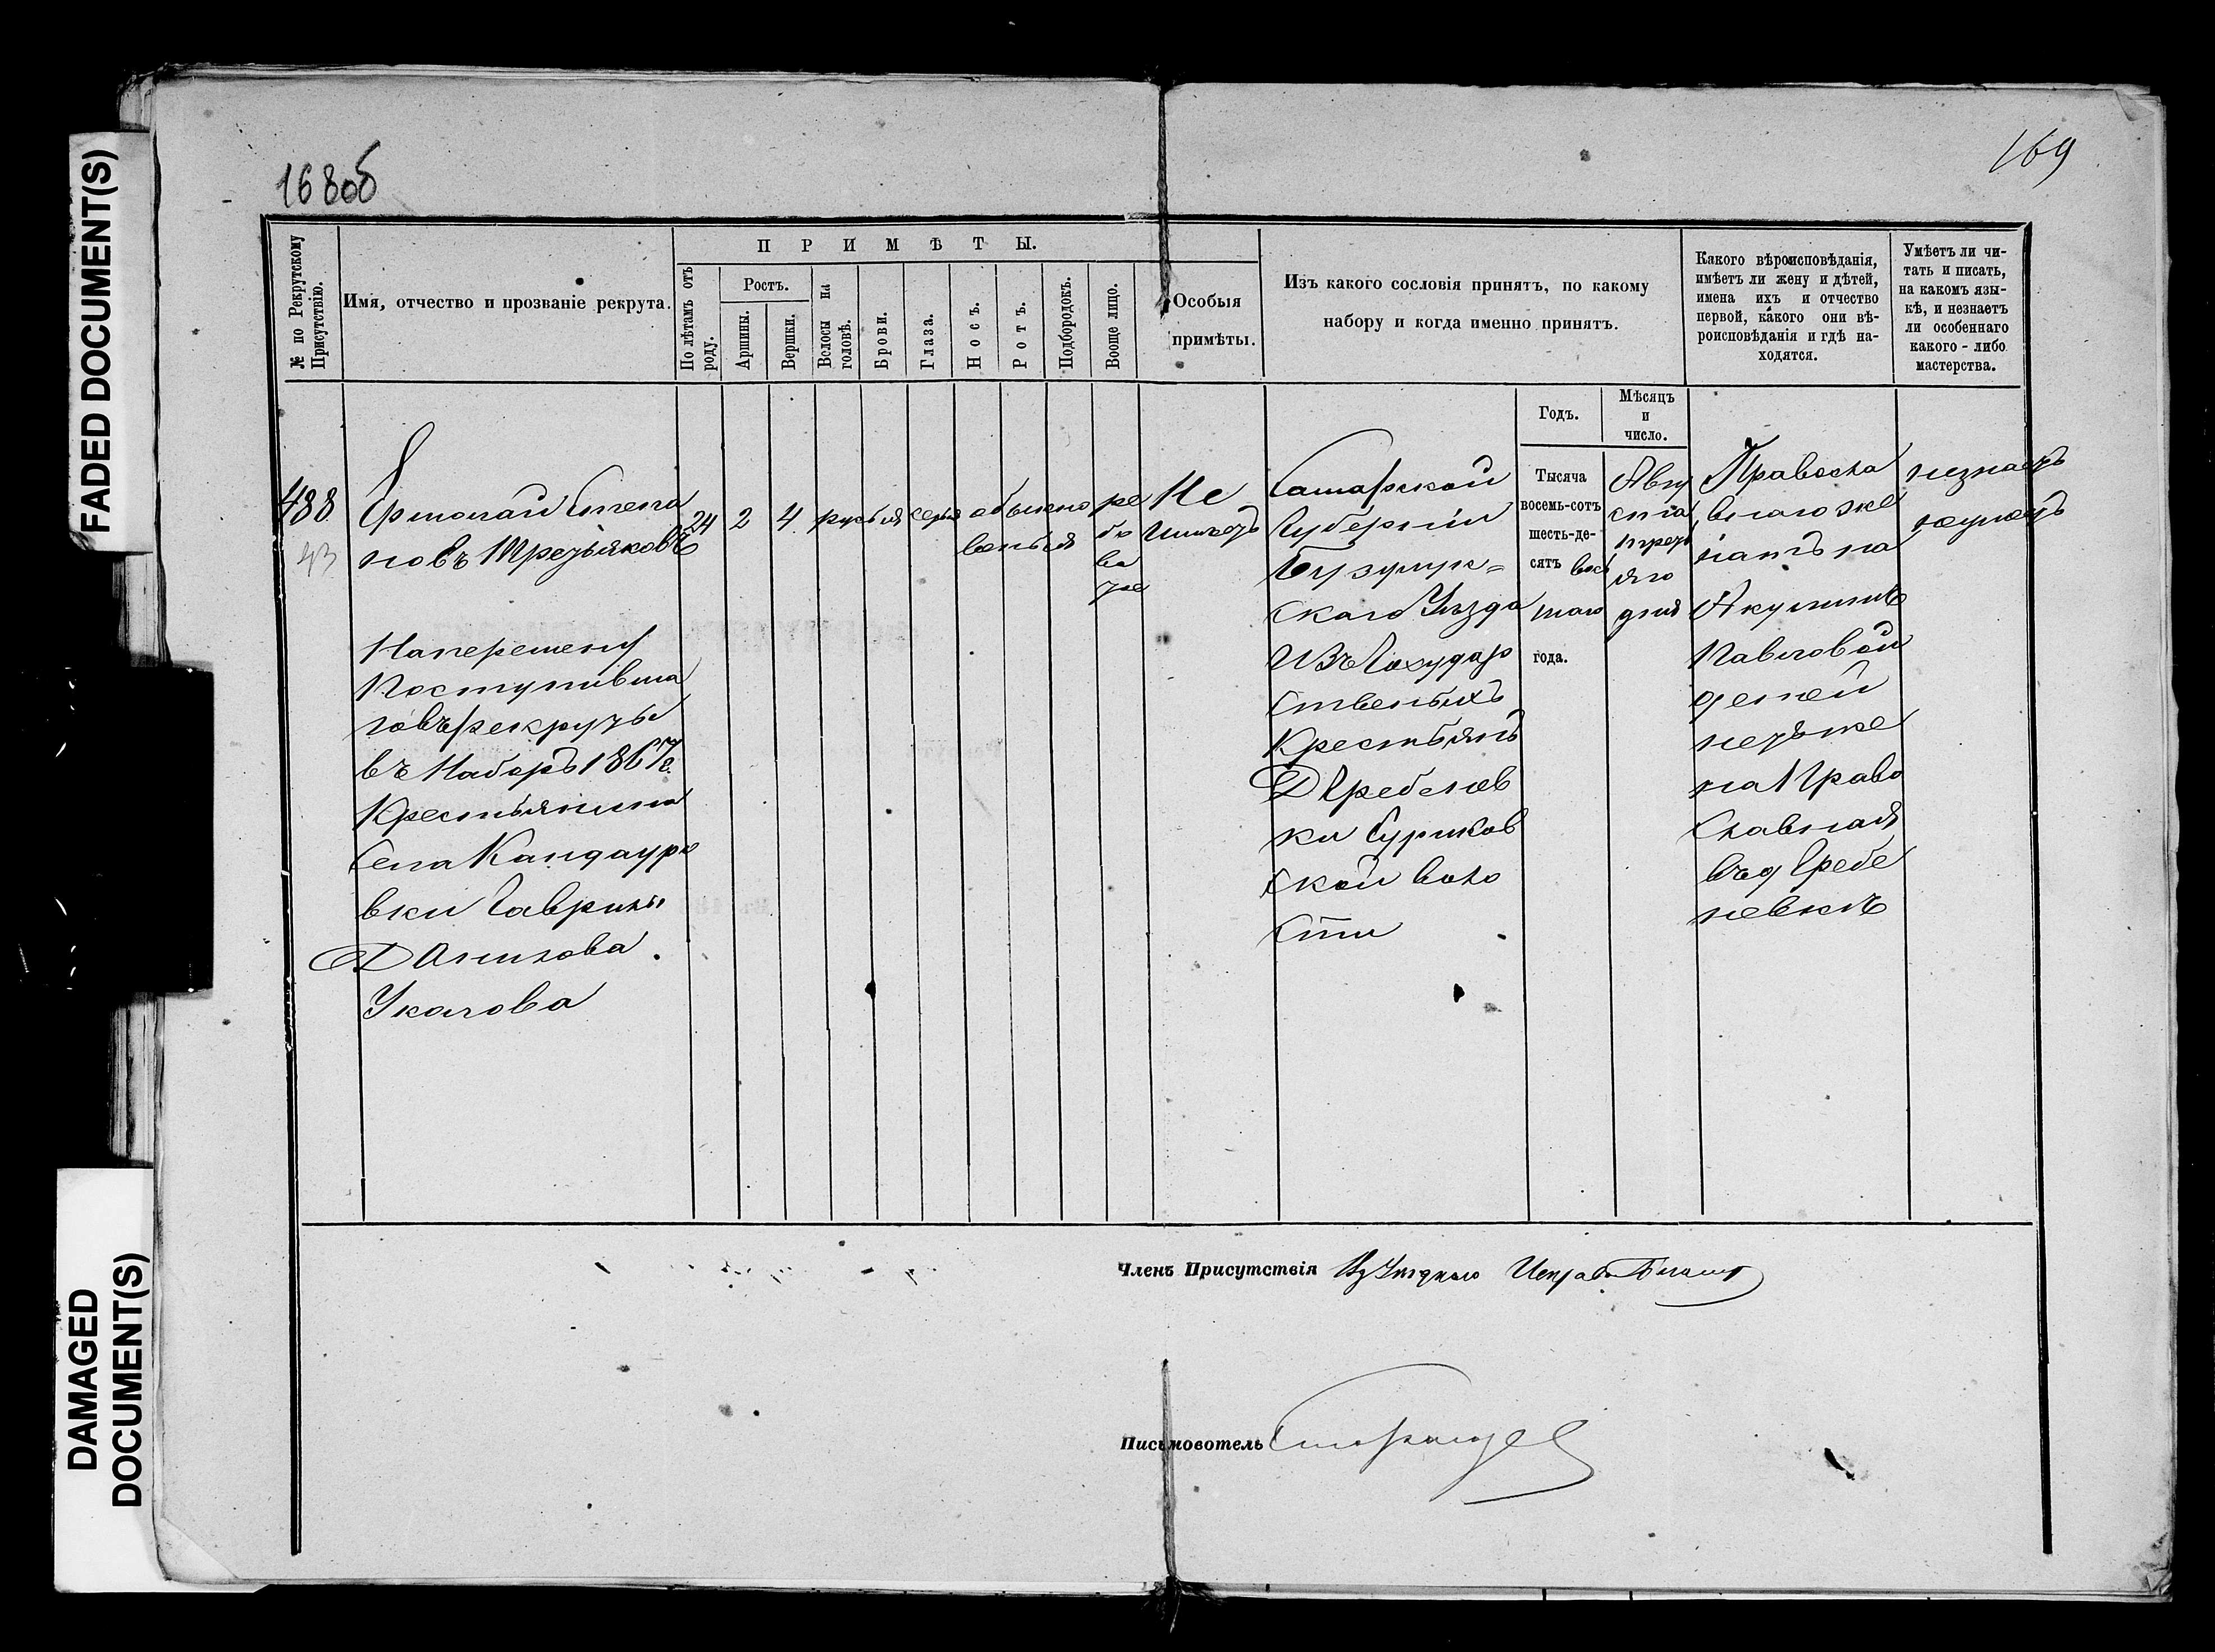 FADED DOCUMENT(S)
DAMAGED
DOCUMENT(S)
168об
169
№ по Рекрутскому
Присутствію.
Имя, отчество и прозваніе рекрута.
ПРИМѢТЫ.
По лѣтамъ отъ
роду.
Ростъ.
Аршины.
Вершки.
Волосы на
головѣ.
Брови.
Глаза.
Носъ.
Ротъ.
Подбородокъ.
Вооще лицо.
Особыя
примѣты.
Изъ какого сословія принятъ, по какому
набору и когда именно принятъ.
Какого вѣроисповѣданія,
имѣетъ ли жену и дѣтей,
имена ихъ и отчество
первой, какого они вѣ-
роисповѣданія и гдѣ на-
ходятся.
Умѣетъ ли чи-
тать и писать,
на какомъ язы-
кѣ, и незнаетъ
ли особеннаго
какого - либо
мастерства.
Годъ.
Мѣсяцъ
и
число.
488
43
Ермолай Степа
новъ Третьяковъ
Наперемену
Поступивша
говъ рекруты
въ Наборъ 1867г.
Крестьянина
Села Кандауро
вки Гаврилы
Данилова
Уколова
24
2
4
русыя
серыя
обыкно
веныя
ре
бо
ва
тое
Не
имеетъ
Самарской
Губерніи
Бузулук=
скаго Уѣзда
ИЗъ Государ
ственыхъ
Крестьянъ
Д Гребенев
ки
ской воло
сти
Тысяча
восемь-сотъ
шесть-де-
сятъ вось
маго
года.
Авгу
ста
треть
яго
дня
Правосла
внаго же
натъ на
Акулинѣ
Павловой
детей
нетъ же
на Право
славная
въ д Гребе
невкѣ
незнаетъ
неумеетъ
Членъ Присутствія
Письмоводитель